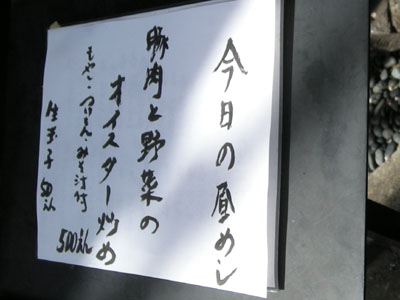 今日の昼めし
豚肉と野菜の
オイスター炒め
もやし・つけもの・みそ汁付
500えん
生玉子 50えん